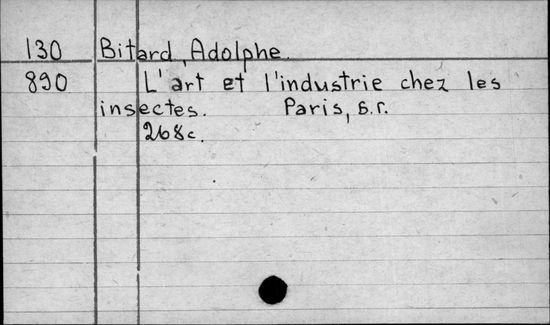 130 Bitard, Adolphe.
890 L'art et l'industrie chez les
insectes. Paris, s.r.
268c.